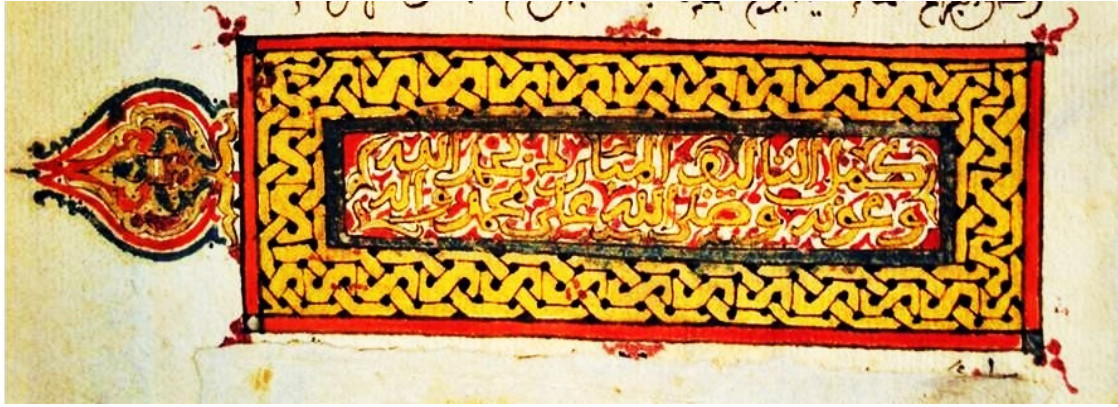 كمل التأليف المبارك بحمد الله
وعونه وصلى الله على محمد وآله